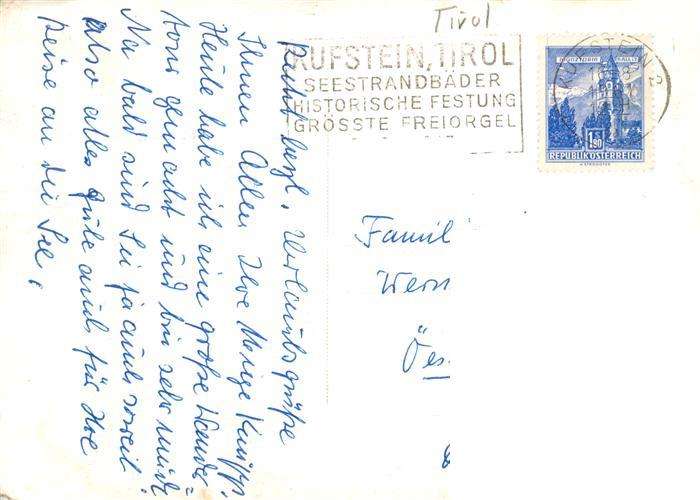 Tirol
KUFSTEIN, TIROL
SEESTRANDBÄDER
HISTORISCHE FESTUNG
GRÖSSTE FREIORGEL
KUFSTEIN 2
1.80
REPUBLIK ÖSTERREICH
Recht herzl. Urlaubsgrüße
Ihnen Allen Ihre
Heute habe ich eine große Wander=
tour gemacht und bin sehr müde
Na bald sind Sie ja auch soweit
also alles Gute auch für Ihre
Reise an die See.
Famil
Wern
Öes.